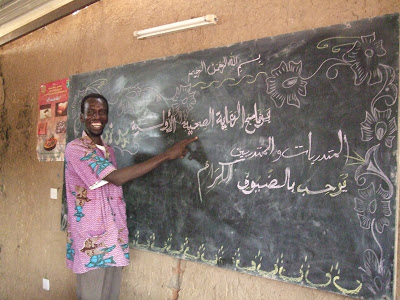 بسم الله الرحمن الرحيم
برنامج الرعاية الصحية الأولية
المتدربات والمتدربين
يرحب بالضيوف الكرام